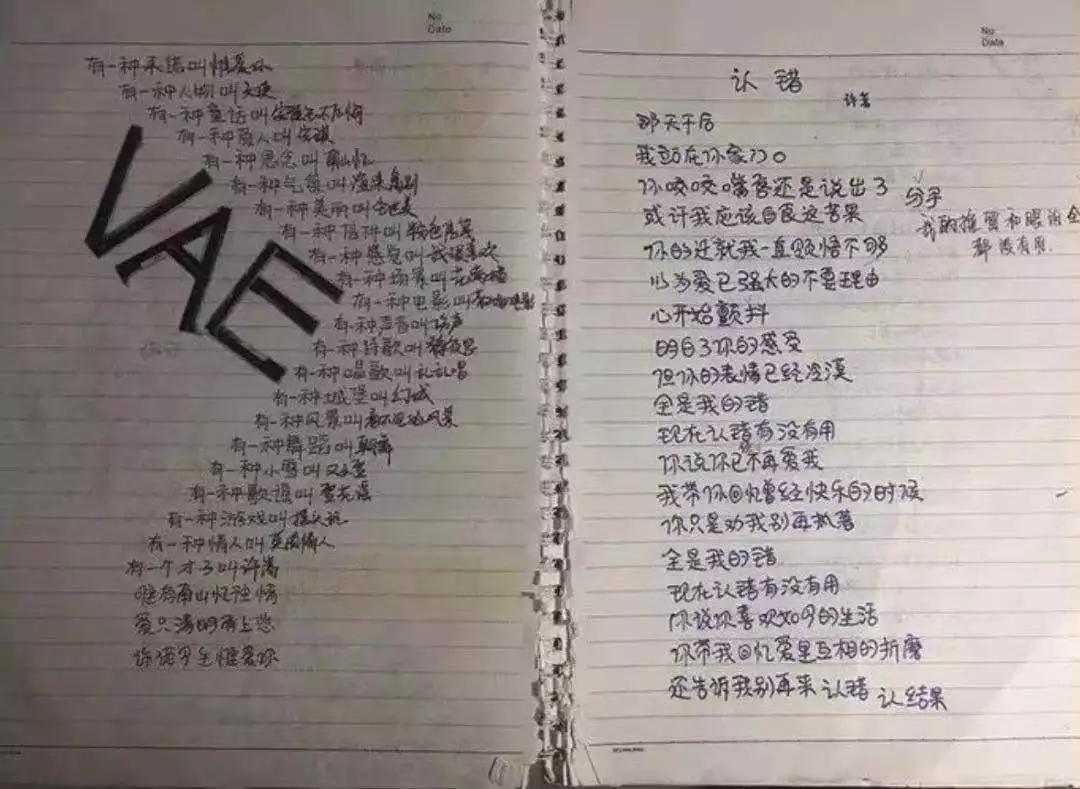 No
Date
有一种承诺叫惟爱你
有一种人物叫天使
有一种童话叫
有一种商人叫安琪
有一种思念叫南山忆
有一种气氛叫渲染离别
有一种美丽叫会思美
有一种信件叫粉色信笺
有一种感觉叫我很喜欢
有一种场景叫花满楼
有一种电影叫有桃电影
有一种声音叫
有一种诗歌叫静夜思
有一种唱歌叫乱乱唱
有一种城堡叫幻城
有一种风景叫看不见的风景
有一种舞蹈叫
有一种小雪叫
有一种歌谣叫雪花谣
有一种游戏叫摇头玩
有一种情人叫英国情人
有一个才子叫许嵩
唯有南山忆往情
爱只嵩的肩上悲
许诺半生惟爱你
VAE
No
Date
认错
许嵩
那天午后
我站在你家门口
你咬咬嘴唇还是说出了分手
我的挽留和眼泪全都没有用
或许我应该自食这苦果
你的迁就我一直领悟不够
以为爱已强大的不要理由
心开始颤抖
明白了你的感受
但你的表情已经冷漠
全是我的错
现在认错有没有用
你说你已不再爱我
我带你回忆曾经快乐的时候
你只是劝我别再执著
全是我的错
现在认错有没有用
你说你喜欢如今的生活
你带我回忆爱里互相的折磨
还告诉我别再来认错 认结果